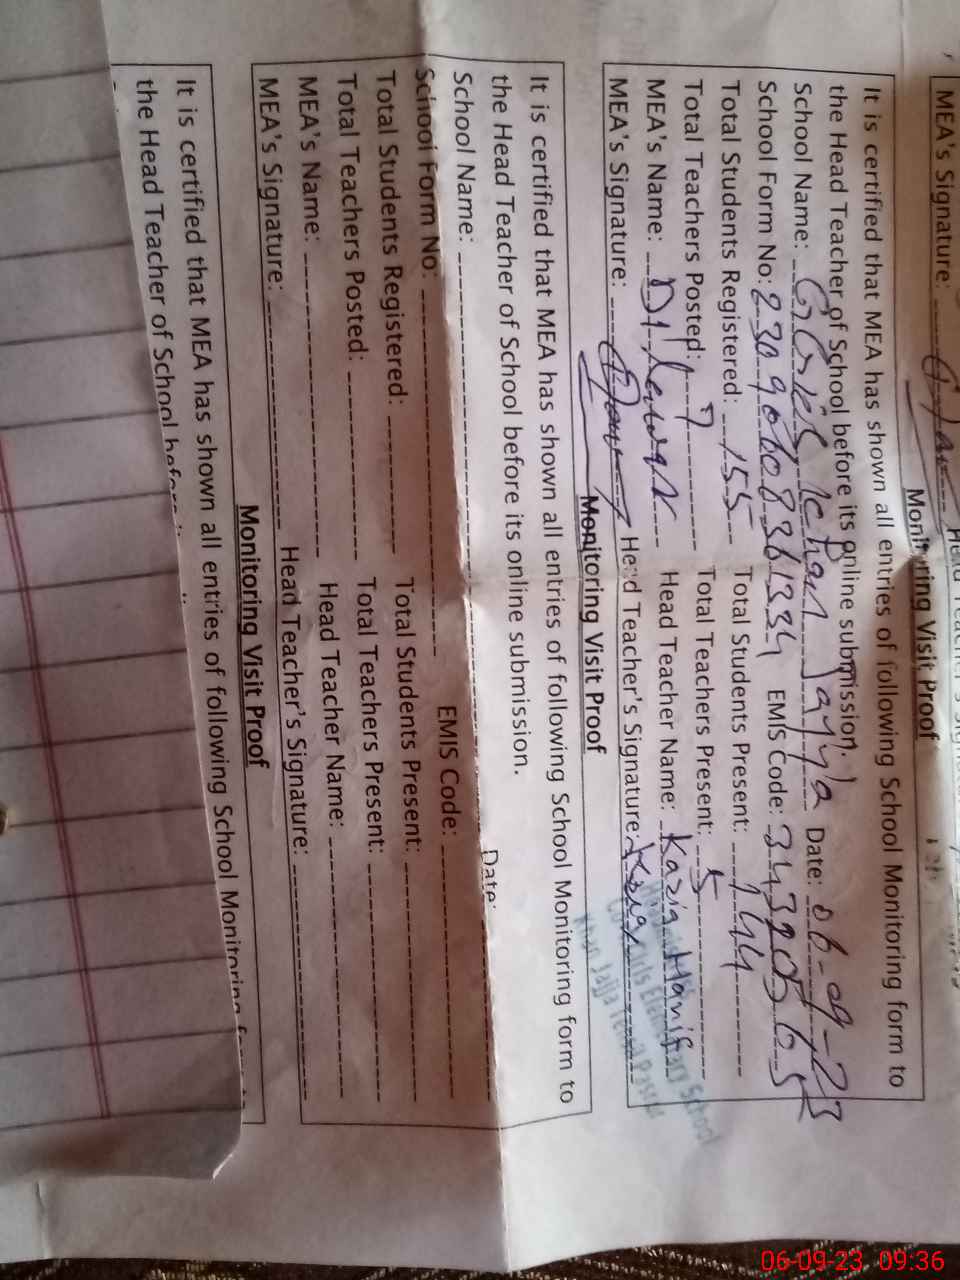 MEA's Signature:
Monitoring Visit Proof
It is certified that MEA has shown all entries of following School Monitoring form to
the Head Teacher of School before its online submission.
School Name: GGES Khan Jajja Date: 06-09-23
School Form No: Total Students Registered: 155 Total Students Present: 144
EMIS Code: 34320565
Total Teachers Posted: 7 Total Teachers Present: 5
MEA's Name: Dilawar Head Teacher Name: Kazia Hanif
MEA's Signature: Head Teacher's Signature:
Elementary School
Khan Jajja
Monitoring Visit Proof
It is certified that MEA has shown all entries of following School Monitoring form to
the Head Teacher of School before its online submission.
School Name: Date:
School Form No: EMIS Code:
Total Students Registered: Total Students Present:
Total Teachers Posted: Total Teachers Present:
MEA's Name: Head Teacher Name:
MEA's Signature: Head Teacher's Signature:
Monitoring Visit Proof
It is certified that MEA has shown all entries of following School Monitoring
the Head Teacher of School
06-09-23 09:36